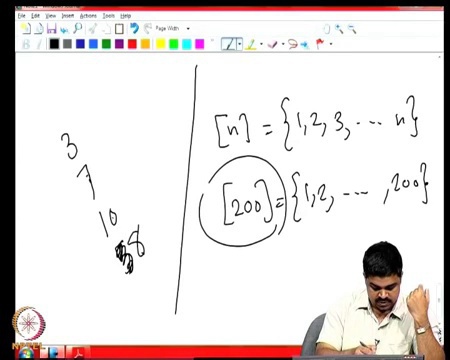 File Edit View Insert Actions Tools Help
Page Width
B
3
7
10
8
[n] = {1, 2, 3, ... n}
[200] = {1, 2, ..., 200}